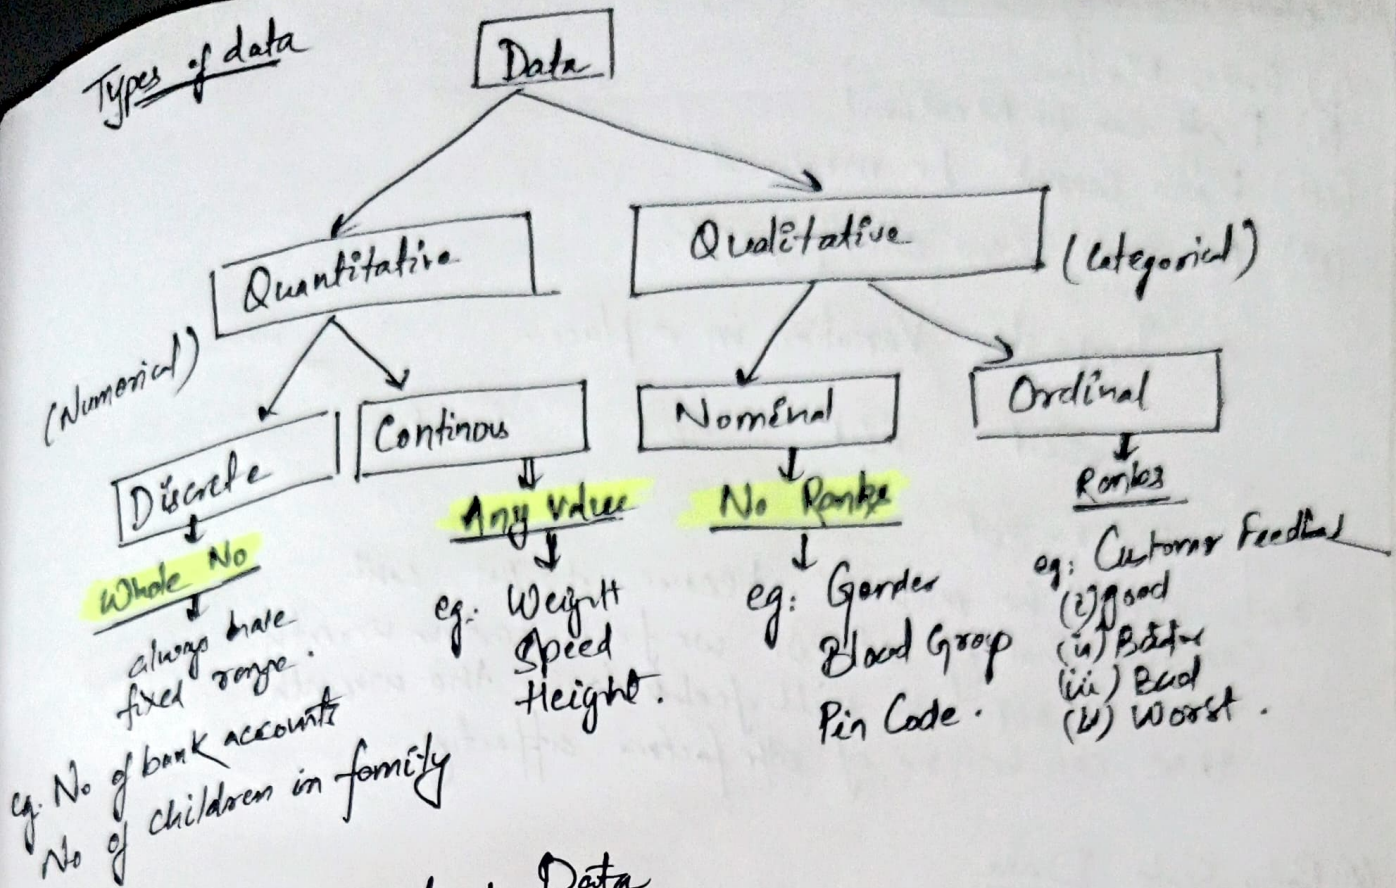 Types of data
Data
Quantitative
(Numerical)
Qualitative
(Categorical)
Discrete
Whole No
always have
fixed range.
eg. No of bank accounts
No of children in family
Continous
Any value
eg: Weight
Speed
Height.
Nominal
No Ranks
eg: Gender
Blood Group
Pin Code.
Ordinal
Ranks
eg: Customer Feedback
(i) good
(ii)
(iii) Bad
(iv) Worst.
Data